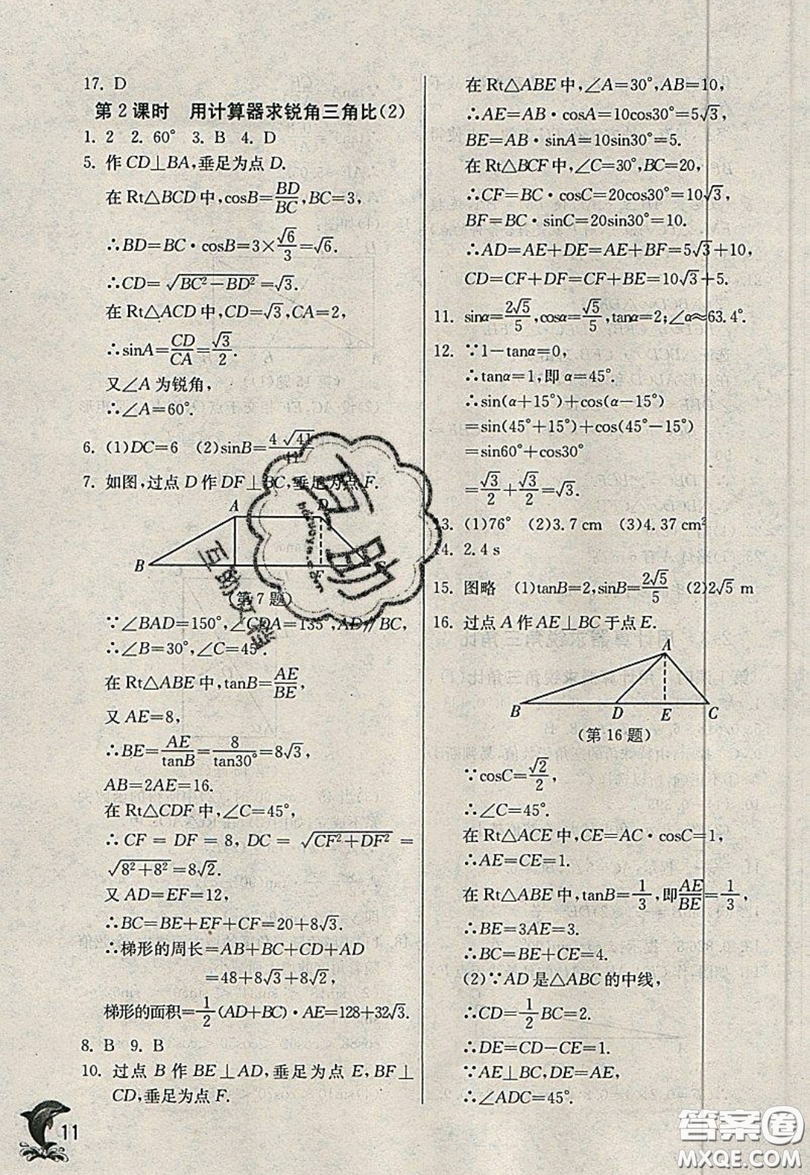 17. D
第2课时　用计算器求锐角三角比(2)
1. 2　2. 60°　3. B　4. D
5. 作CD⊥BA,垂足为点D.
在Rt△BCD中,cosB=BD/BC,BC=3,
∴BD=BC·cosB=3×√6/3=√6.
∴CD=√(BC²−BD²)=√3.
在Rt△ACD中,CD=√3,CA=2,
∴sinA=CD/CA=√3/2.
又∠A为锐角,
∴∠A=60°.
6. (1)DC=6　(2)sinB=4√41/
7. 如图,过点D作DF⊥BC,垂足为点F.
A D
B
(第7题)
∵∠BAD=150°,∠CDA=135°,AD∥BC,
∴∠B=30°,∠C=45°.
在Rt△ABE中,tanB=AE/BE,
又AE=8,
∴BE=AE/tanB=8/tan30°=8√3,
AB=2AE=16.
在Rt△CDF中,∠C=45°,
∴CF=DF=8,DC=√(CF²+DF²)=
√(8²+8²)=8√2.
又AD=EF=12,
∴BC=BE+EF+CF=20+8√3.
∴梯形的周长=AB+BC+CD+AD
=48+8√3+8√2.
梯形的面积=1/2(AD+BC)·AE=128+32√3.
8. B　9. B
10. 过点B作BE⊥AD,垂足为点E,BF⊥
CD,垂足为点F.
11
在Rt△ABE中,∠A=30°,AB=10,
∴AE=AB·cosA=10cos30°=5√3,
BE=AB·sinA=10sin30°=5.
在Rt△BCF中,∠C=30°,BC=20,
∴CF=BC·cosC=20cos30°=10√3,
BF=BC·sinC=20sin30°=10.
∴AD=AE+DE=AE+BF=5√3+10,
CD=CF+DF=CF+BE=10√3+5.
11. sinα=2√5/5,cosα=√5/5,tanα=2;∠α≈63.4°.
12. ∵1−tanα=0,
∴tanα=1,即α=45°.
∴sin(α+15°)+cos(α−15°)
=sin(45°+15°)+cos(45°−15°)
=sin60°+cos30°
=√3/2+√3/2=√3.
13. (1)76°　(2)3.7 cm　(3)4.37 cm²
14. 2.4 s
15. 图略　(1)tanB=2,sinB=2√5/5　(2)2√5 m
16. 过点A作AE⊥BC于点E.
A
B D E C
(第16题)
∵cosC=√2/2,
∴∠C=45°.
在Rt△ACE中,CE=AC·cosC=1,
∴AE=CE=1.
在Rt△ABE中,tanB=1/3,即AE/BE=1/3,
∴BE=3AE=3.
∴BC=BE+CE=4.
(2)∵AD是△ABC的中线,
∴CD=1/2BC=2.
∴DE=CD−CE=1.
∵AE⊥BC,DE=AE,
∴∠ADC=45°.
互助
互助文档
答案圈
MXQE.COM